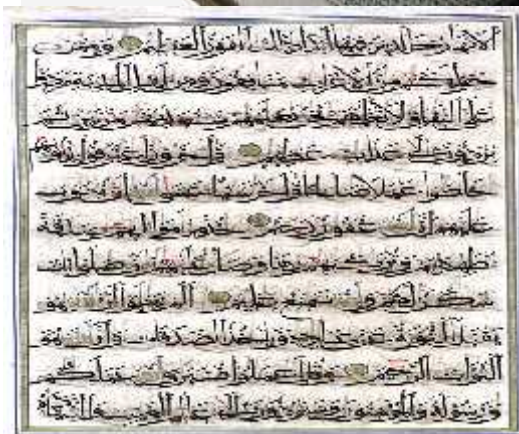 الأنهار خالدين فيها أبدا ذلك الفوز العظيم وممن
حولكم من الأعراب منافقون ومن أهل المدينة مردوا
على النفاق لا تعلمهم نحن نعلمهم سنعذبهم مرتين ثم
يردون إلى عذاب عظيم وآخرون اعترفوا بذنوبهم
خلطوا عملا صالحا وآخر سيئا عسى الله أن يتوب
عليهم إن الله غفور رحيم خذ من أموالهم صدقة
تطهرهم وتزكيهم بها وصل عليهم إن صلواتك
سكن لهم والله سميع عليم ألم يعلموا أن الله هو
يقبل التوبة عن عباده ويأخذ الصدقات وأن الله هو
التواب الرحيم وقل اعملوا فسيرى الله عملكم
ورسوله والمؤمنون وستردون إلى عالم الغيب والشهادة